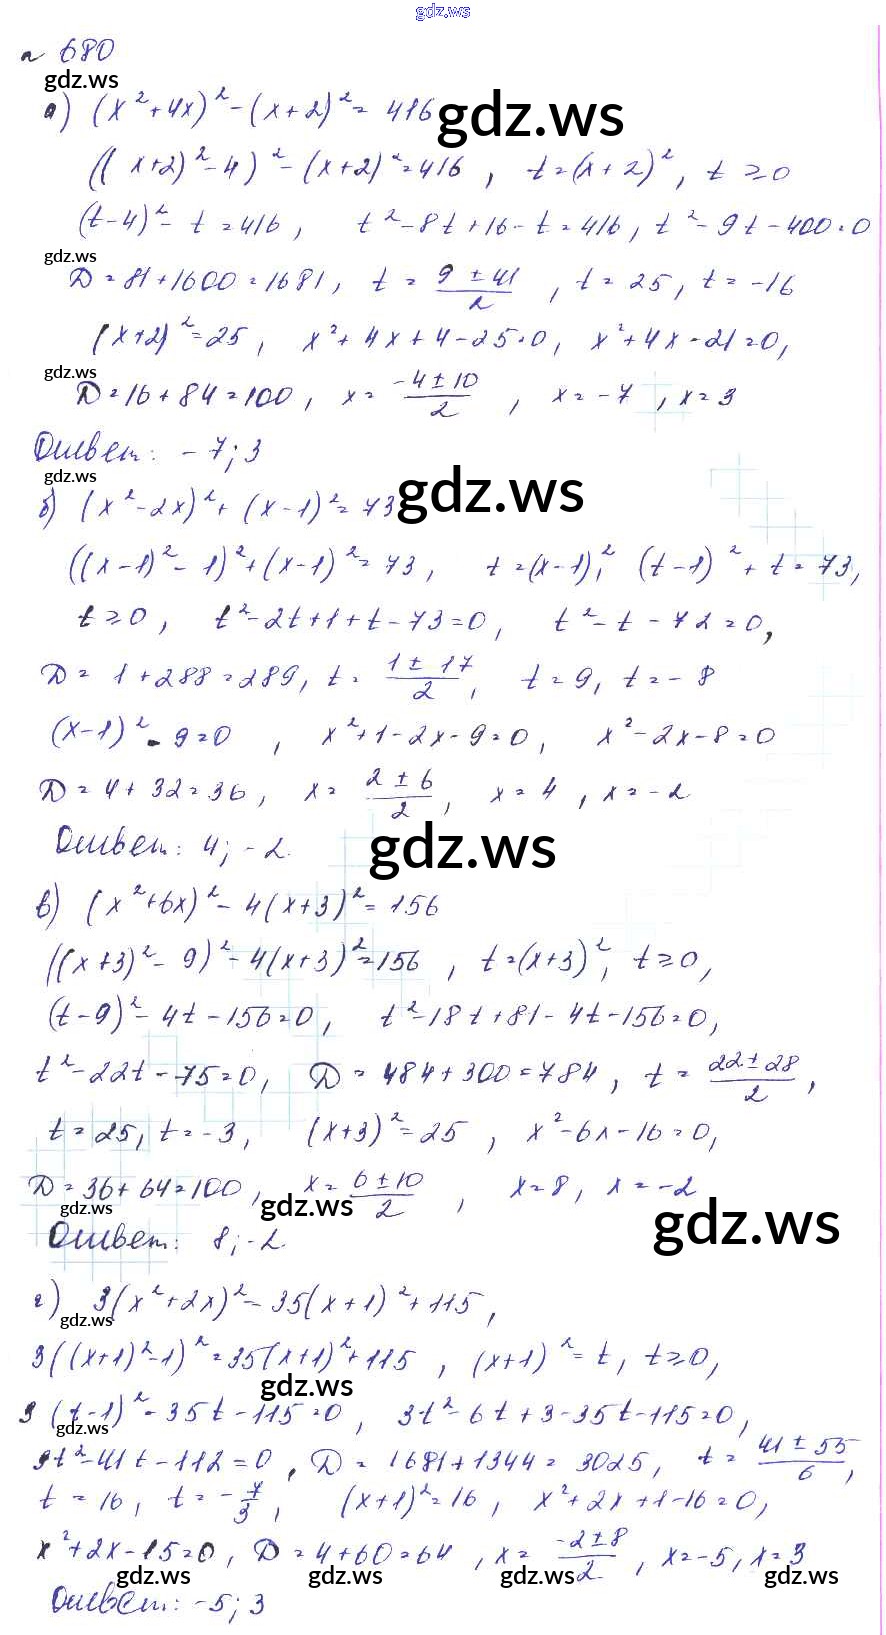 gdz.ws
n 680
gdz.ws
а) (x²+4x)²-(x+2)²=416
gdz.ws
((x+2)²-4)²-(x+2)²=416, t=(x+2)², t≥0
(t-4)²-t=416, t²-8t+16-t=416, t²-9t-400=0
gdz.ws
D=81+1600=1681, t=(9±41)/2, t=25, t=-16
(x+2)²=25, x²+4x+4-25=0, x²+4x-21=0,
gdz.ws
D=16+84=100, x=(-4±10)/2, x=-7, x=3
Ответ: -7; 3
gdz.ws
gdz.ws
б) (x²-2x)²+(x-1)²=73
((x-1)²-1)²+(x-1)²=73, t=(x-1)², (t-1)²+t=73,
t≥0, t²-2t+1+t-73=0, t²-t-72=0,
D=1+288=289, t=(1±17)/2, t=9, t=-8
(x-1)²-9=0, x²+1-2x-9=0, x²-2x-8=0
D=4+32=36, x=(2±6)/2, x=4, x=-2
Ответ: 4; -2.
gdz.ws
в) (x²+6x)²-4(x+3)²=156
((x+3)²-9)²-4(x+3)²=156, t=(x+3)², t≥0,
(t-9)²-4t-156=0, t²-18t+81-4t-156=0,
t²-22t-75=0, D=484+300=784, t=(22±28)/2,
t=25, t=-3, (x+3)²=25, x²-6x-16=0,
D=36+64=100, x=(6±10)/2, x=8, x=-2
gdz.ws
gdz.ws
Ответ: 8; -2.
г) 3(x²+2x)²=35(x+1)²+115,
gdz.ws
3((x+1)²-1)²=35(x+1)²+115, (x+1)²=t, t≥0,
gdz.ws
3(t-1)²-35t-115=0, 3t²-6t+3-35t-115=0,
gdz.ws
3t²-41t-112=0, D=1681+1344=3025, t=(41±55)/6,
t=16, t=-7/3, (x+1)²=16, x²+2x+1-16=0,
x²+2x-15=0, D=4+60=64, x=(-2±8)/2, x=-5, x=3
gdz.ws gdz.ws gdz.ws gdz.ws
Ответ: -5; 3